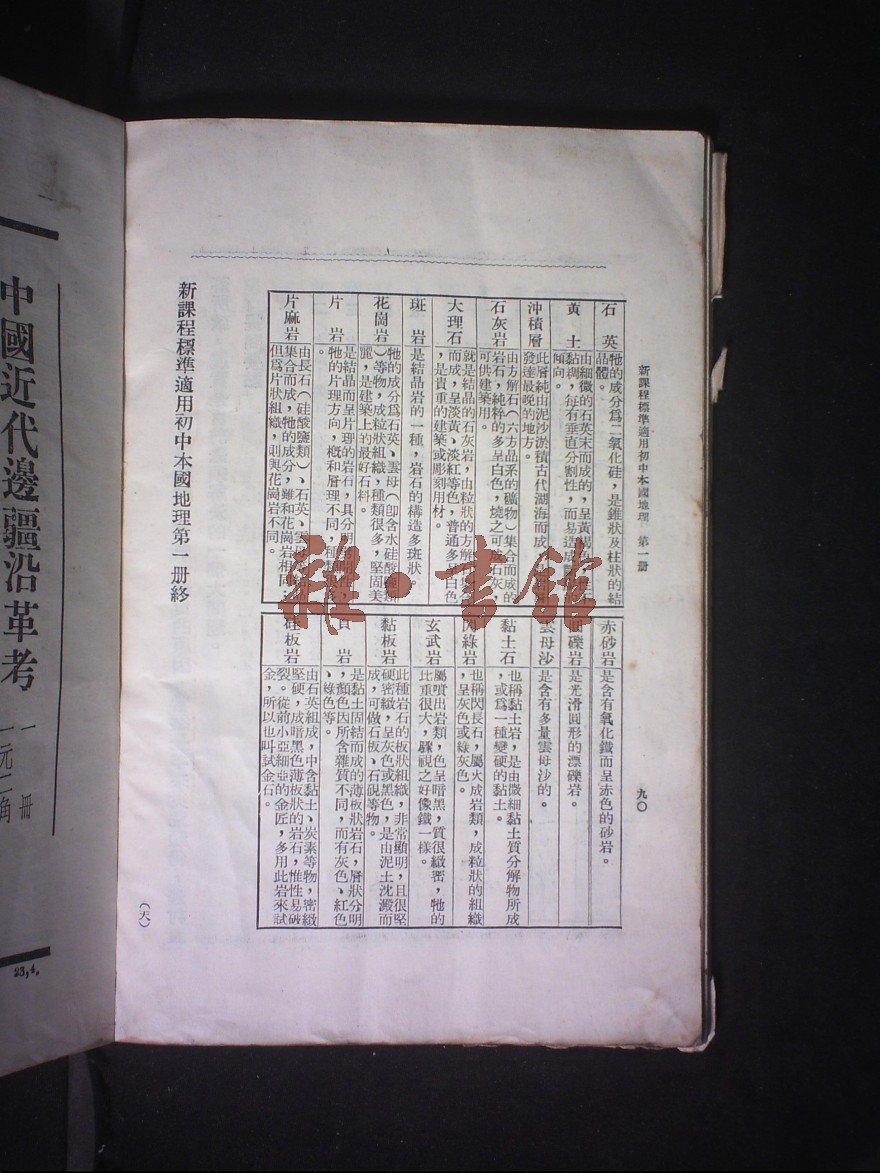 新課程標準適用初中本國地理　第一册
九〇
石英
牠的成分爲二氧化硅，是錐狀及柱狀的結
晶體。
黃土
由細微的石英末而成的，呈黃
黏凋，每有垂直分割性，而易造成
傾向。
沖積層
此層純由泥沙淤積古代湖海而成
發達最晚的地方。
石灰岩
由方解石（六方晶系的礦物）集合而成的
岩石，純粹的多呈白色，燒之可成石灰，
可供建築用。
大理石
就是結晶的石灰岩，由粒狀的方解石
而成，呈淡黃、淡紅等色，普通多呈白色
，是貴重的建築或彫刻用材。
斑岩
是結晶岩的一種，岩石的構造多斑狀。
花崗岩
牠的成分爲石英、雲母（卽含水硅酸鹽類
）等物，成粒狀組織，種類很多，堅固美
麗，是建築上的最好石料。
片岩
是結晶而呈片理的岩石，具分明的
牠的片理方向，槪和層理不同，種
。
片麻岩
由長石（硅酸鹽類）、石英、雲母
集合而成，牠的成分，雖和花崗岩相同
但爲片狀組織，則與花崗岩不同。
赤砂岩
是含有氧化鐵而呈赤色的砂岩。
礫岩
是光滑圓形的漂礫岩。
雲母沙
是含有多量雲母沙的。
黏土石
也稱黏土岩，是由微細黏土質分解物所成
，或爲一種變硬的黏土。
閃綠岩
也稱閃長石，屬火成岩類，成粒狀的組織
，呈灰色或綠灰色。
玄武岩
屬噴出岩類，色呈暗黑，質很緻密，牠的
比重很大，驟視之好像鐵一樣。
黏板岩
此種岩石的板狀組織，非常顯明，且很堅
硬密緻，呈灰色或黑色，是由泥土沈澱而
成，可做石板、石硯等物。
頁岩
是黏土固結而成的薄板狀岩石，層狀分明
，顏色因所含雜質不同，而有灰色、紅色
、綠色等。
硅板岩
由石英組成，中含黏土、炭素等物，密緻
堅硬，成暗黑色薄板狀的岩石，惟性易破
裂。從前小亞細亞的金匠，多用此岩來試
金，所以也叫試金石。
新課程標準適用初中本國地理第一册終
（天）
雜·書館
中國近代邊疆沿革考
一册
一元二角
23,4,